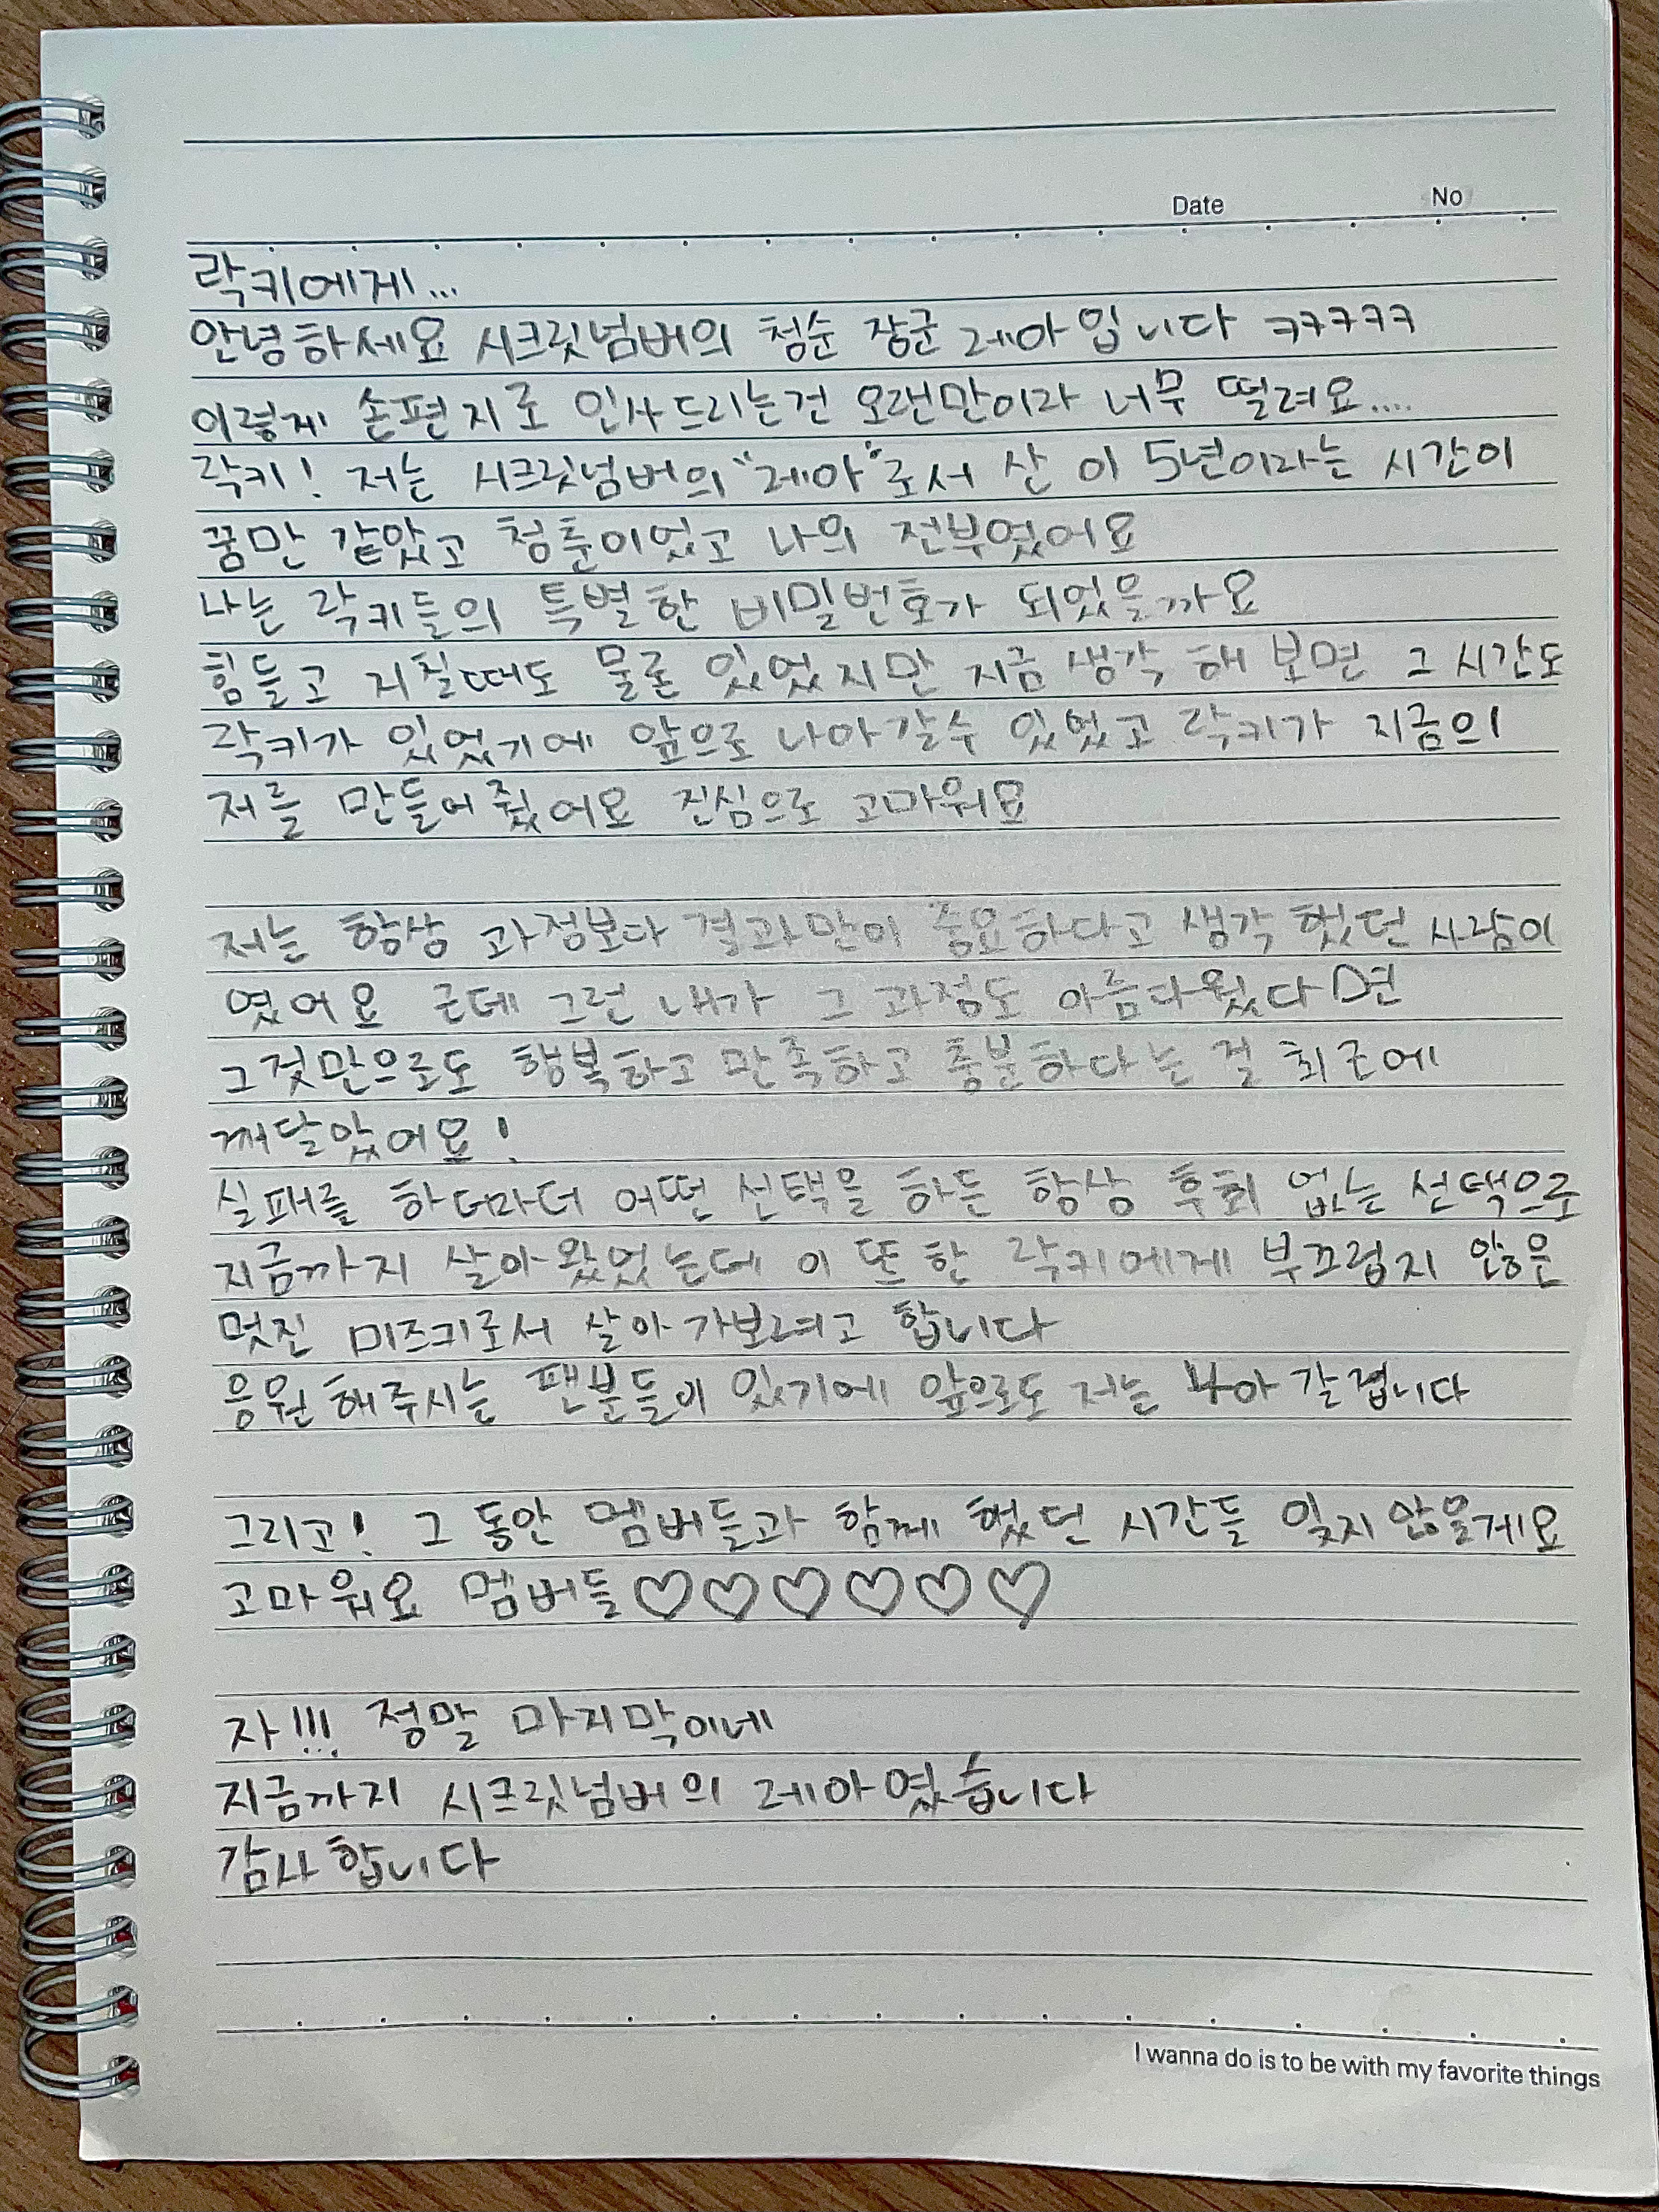 Date No
락키에게...
안녕하세요 시크릿넘버의 청순 장군 레아입니다 ㅋㅋㅋㅋㅋ
이렇게 손편지로 인사드리는건 오랜만이라 너무 떨려요....
락키! 저는 시크릿넘버의 "레아"로서 산 이 5년이라는 시간이
꿈만 같았고 청춘이었고 나의 전부였어요
나는 락키들의 특별한 비밀번호가 되었을까요
힘들고 지칠때도 물론 있었지만 지금 생각 해 보면 그 시간도
락키가 있었기에 앞으로 나아갈수 있었고 락키가 지금의
저를 만들어줬어요 진심으로 고마워요
저는 항상 과정보다 결과만이 중요하다고 생각 했던 사람이
였어요 근데 그런 내가 그 과정도 아름다웠다면
그것만으로도 행복하고 만족하고 충분하다는 걸 최근에
깨달았어요!
실패를 하더라더 어떤 선택을 하든 항상 후회 없는 선택으로
지금까지 살아왔었는데 이 또한 락키에게 부끄럽지 않은
멋진 미즈키로서 살아가보려고 합니다
응원해주시는 팬분들이 있기에 앞으로도 저는 나아갈겁니다
그리고! 그 동안 멤버들과 함께 했던 시간들 잊지 않을게요
고마워요 멤버들♡♡♡♡♡♡
자!!! 정말 마지막이네
지금까지 시크릿넘버의 레아였습니다
감사합니다
I wanna do is to be with my favorite things